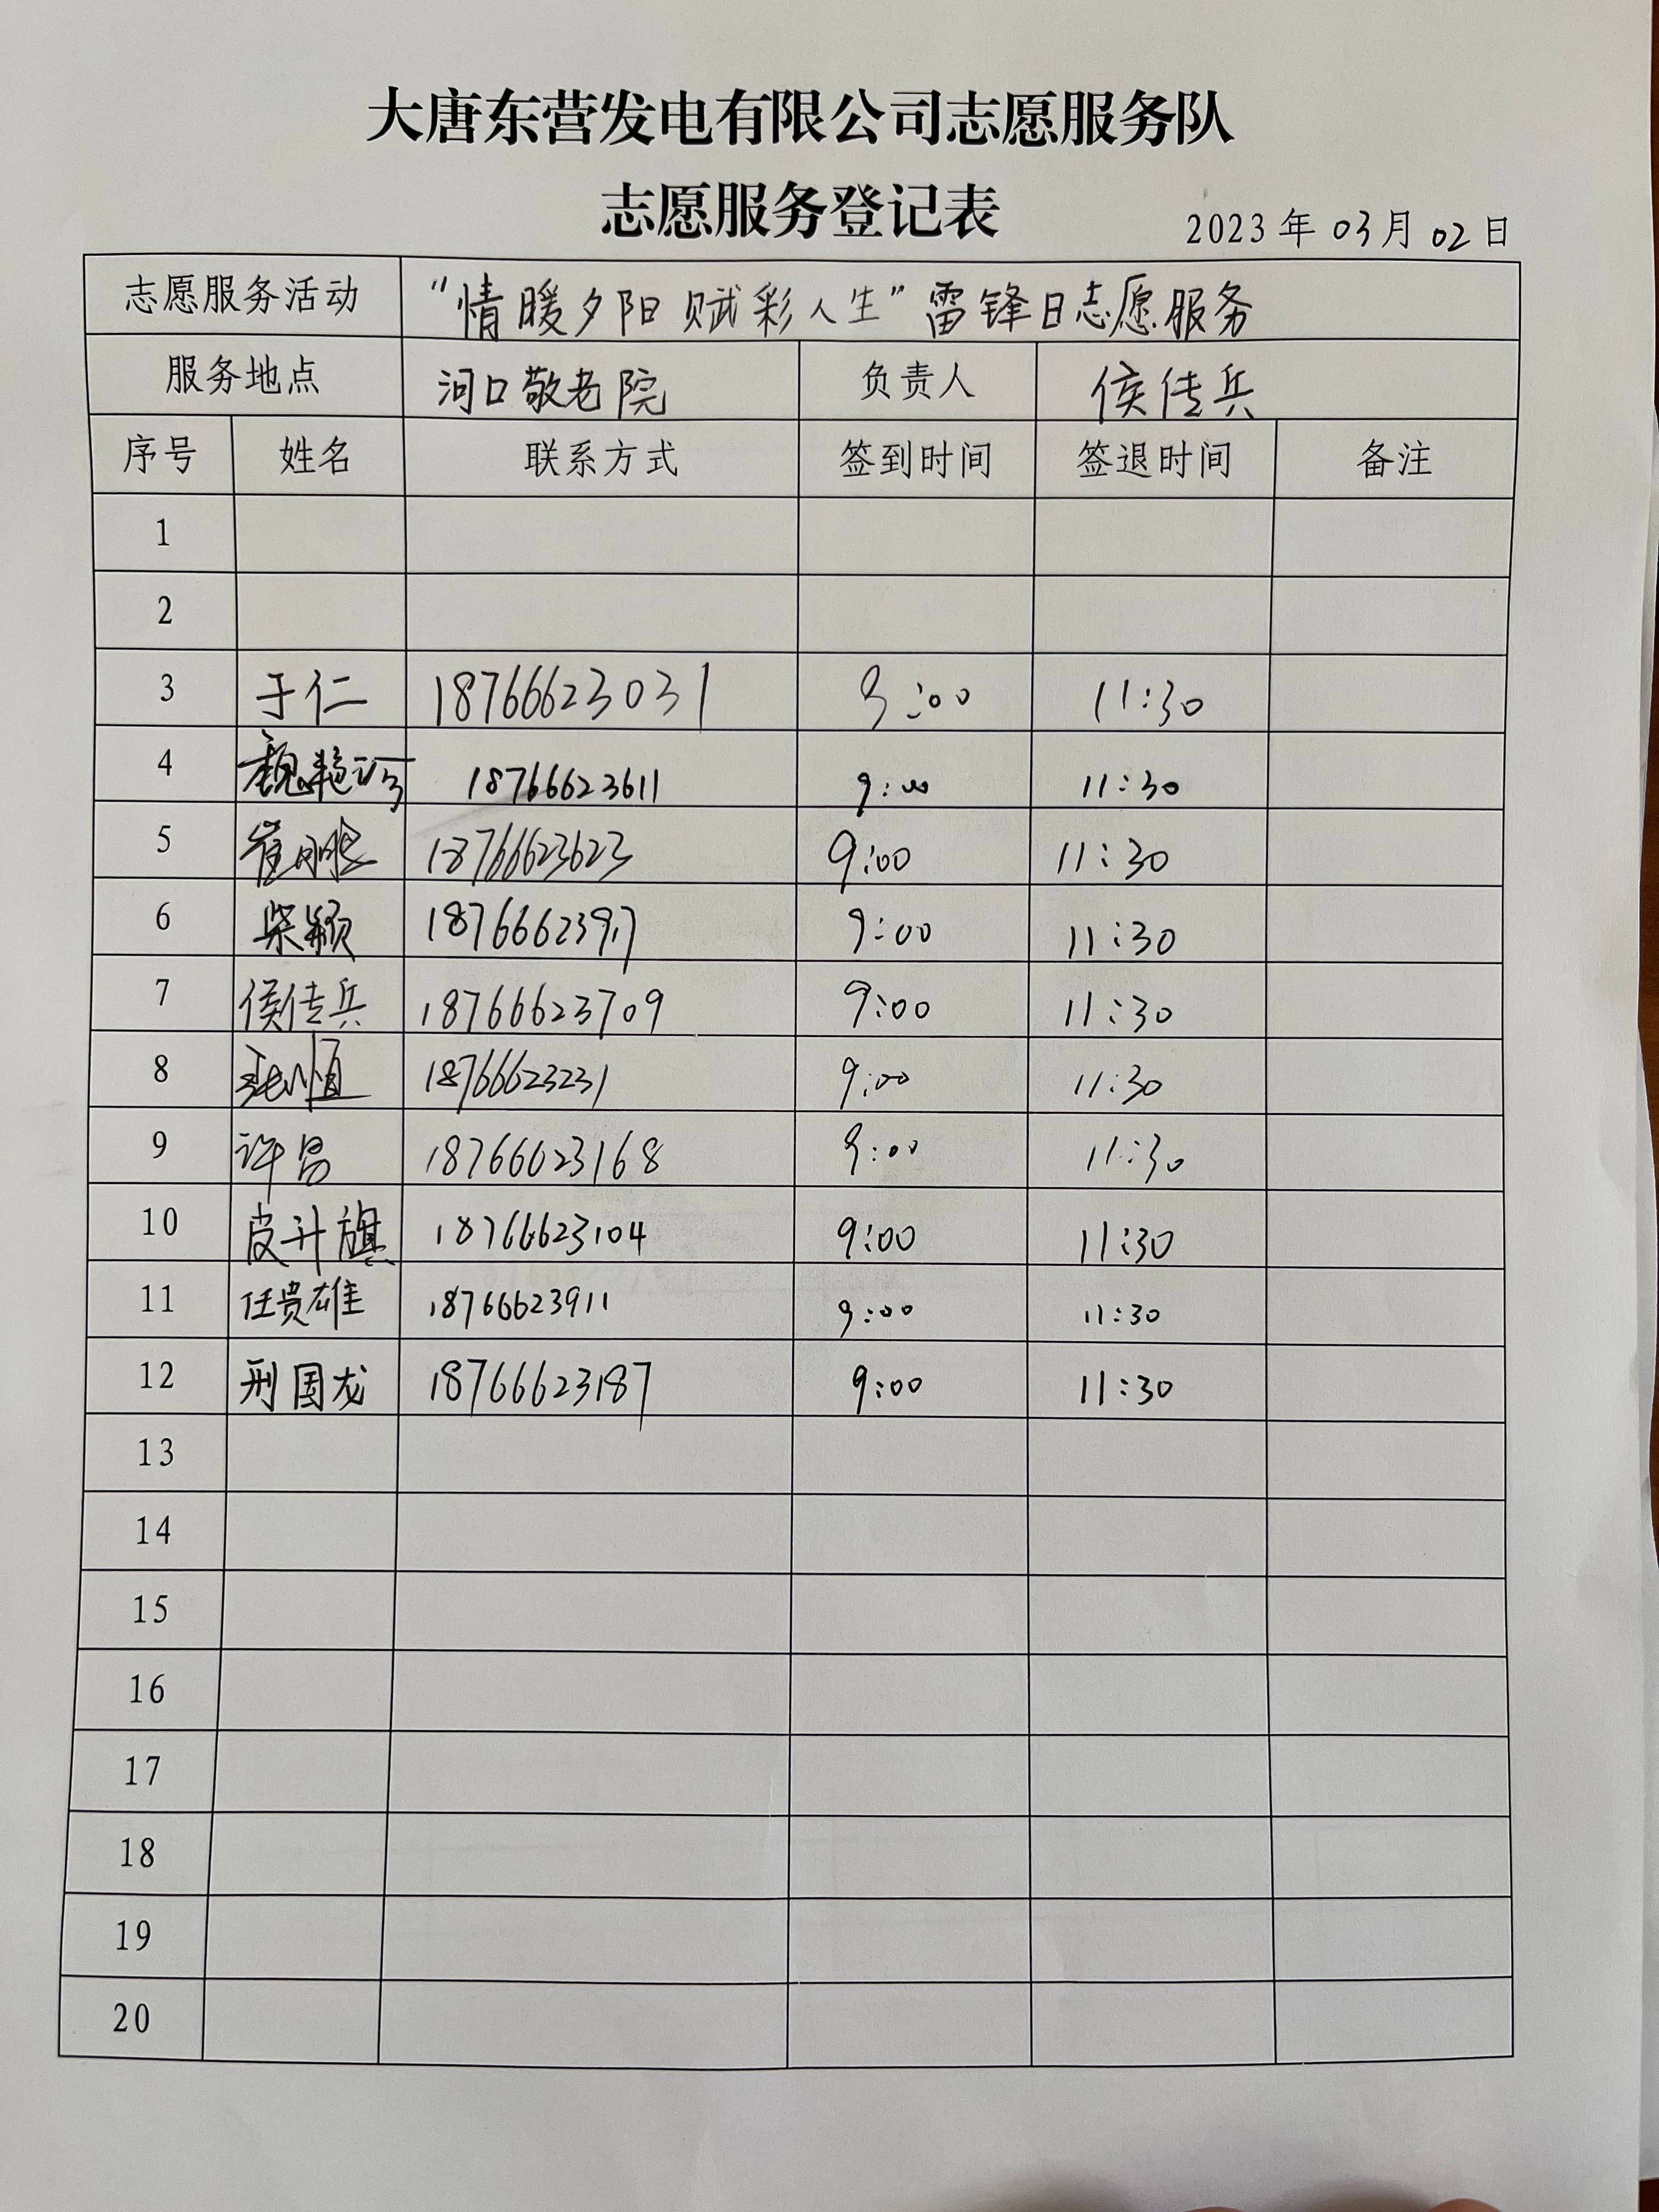 大唐东营发电有限公司志愿服务队
志愿服务登记表
2023年03月02日
志愿服务活动 “情暖夕阳 赋彩人生”雷锋日志愿服务
服务地点 河口敬老院 负责人 侯传兵
序号 姓名 联系方式 签到时间 签退时间 备注
1
2
3 于仁 18766623031 9:00 11:30
4 18766623611 9:00 11:30
5 18766623623 9:00 11:30
6 柴颖 9:00 11:30
7 侯传兵 18766623709 9:00 11:30
8 18766623231 9:00 11:30
9 许昌 18766623168 9:00 11:30
10 皮升旗 18766623104 9:00 11:30
11 任贵雄 18766623911 9:00 11:30
12 刑国龙 18766623187 9:00 11:30
13
14
15
16
17
18
19
20